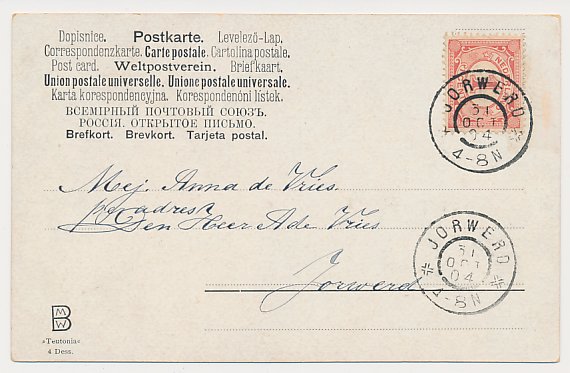 Dopisnice. Postkarte. Levelező-Lap.
Correspondenzkarte. Carte postale. Cartolina postale.
Post card. Weltpostverein. Briefkaart.
Union postale universelle. Unione postale universale.
Karta korespondencyjna. Korespondenční lístek.
ВСЕМІРНЫЙ ПОЧТОВЫЙ СОЮЗЪ.
РОССІЯ. ОТКРЫТОЕ ПИСЬМО.
Brefkort. Brevkort. Tarjeta postal.
JORWERD
31
OCT
04
4-8N
Mej. Anna de Vries.
per adres
Den Heer A de Vries
Jorwerd
JORWERD
31
OCT
04
4-8N
BMW
»Teutonia«
4 Dess.